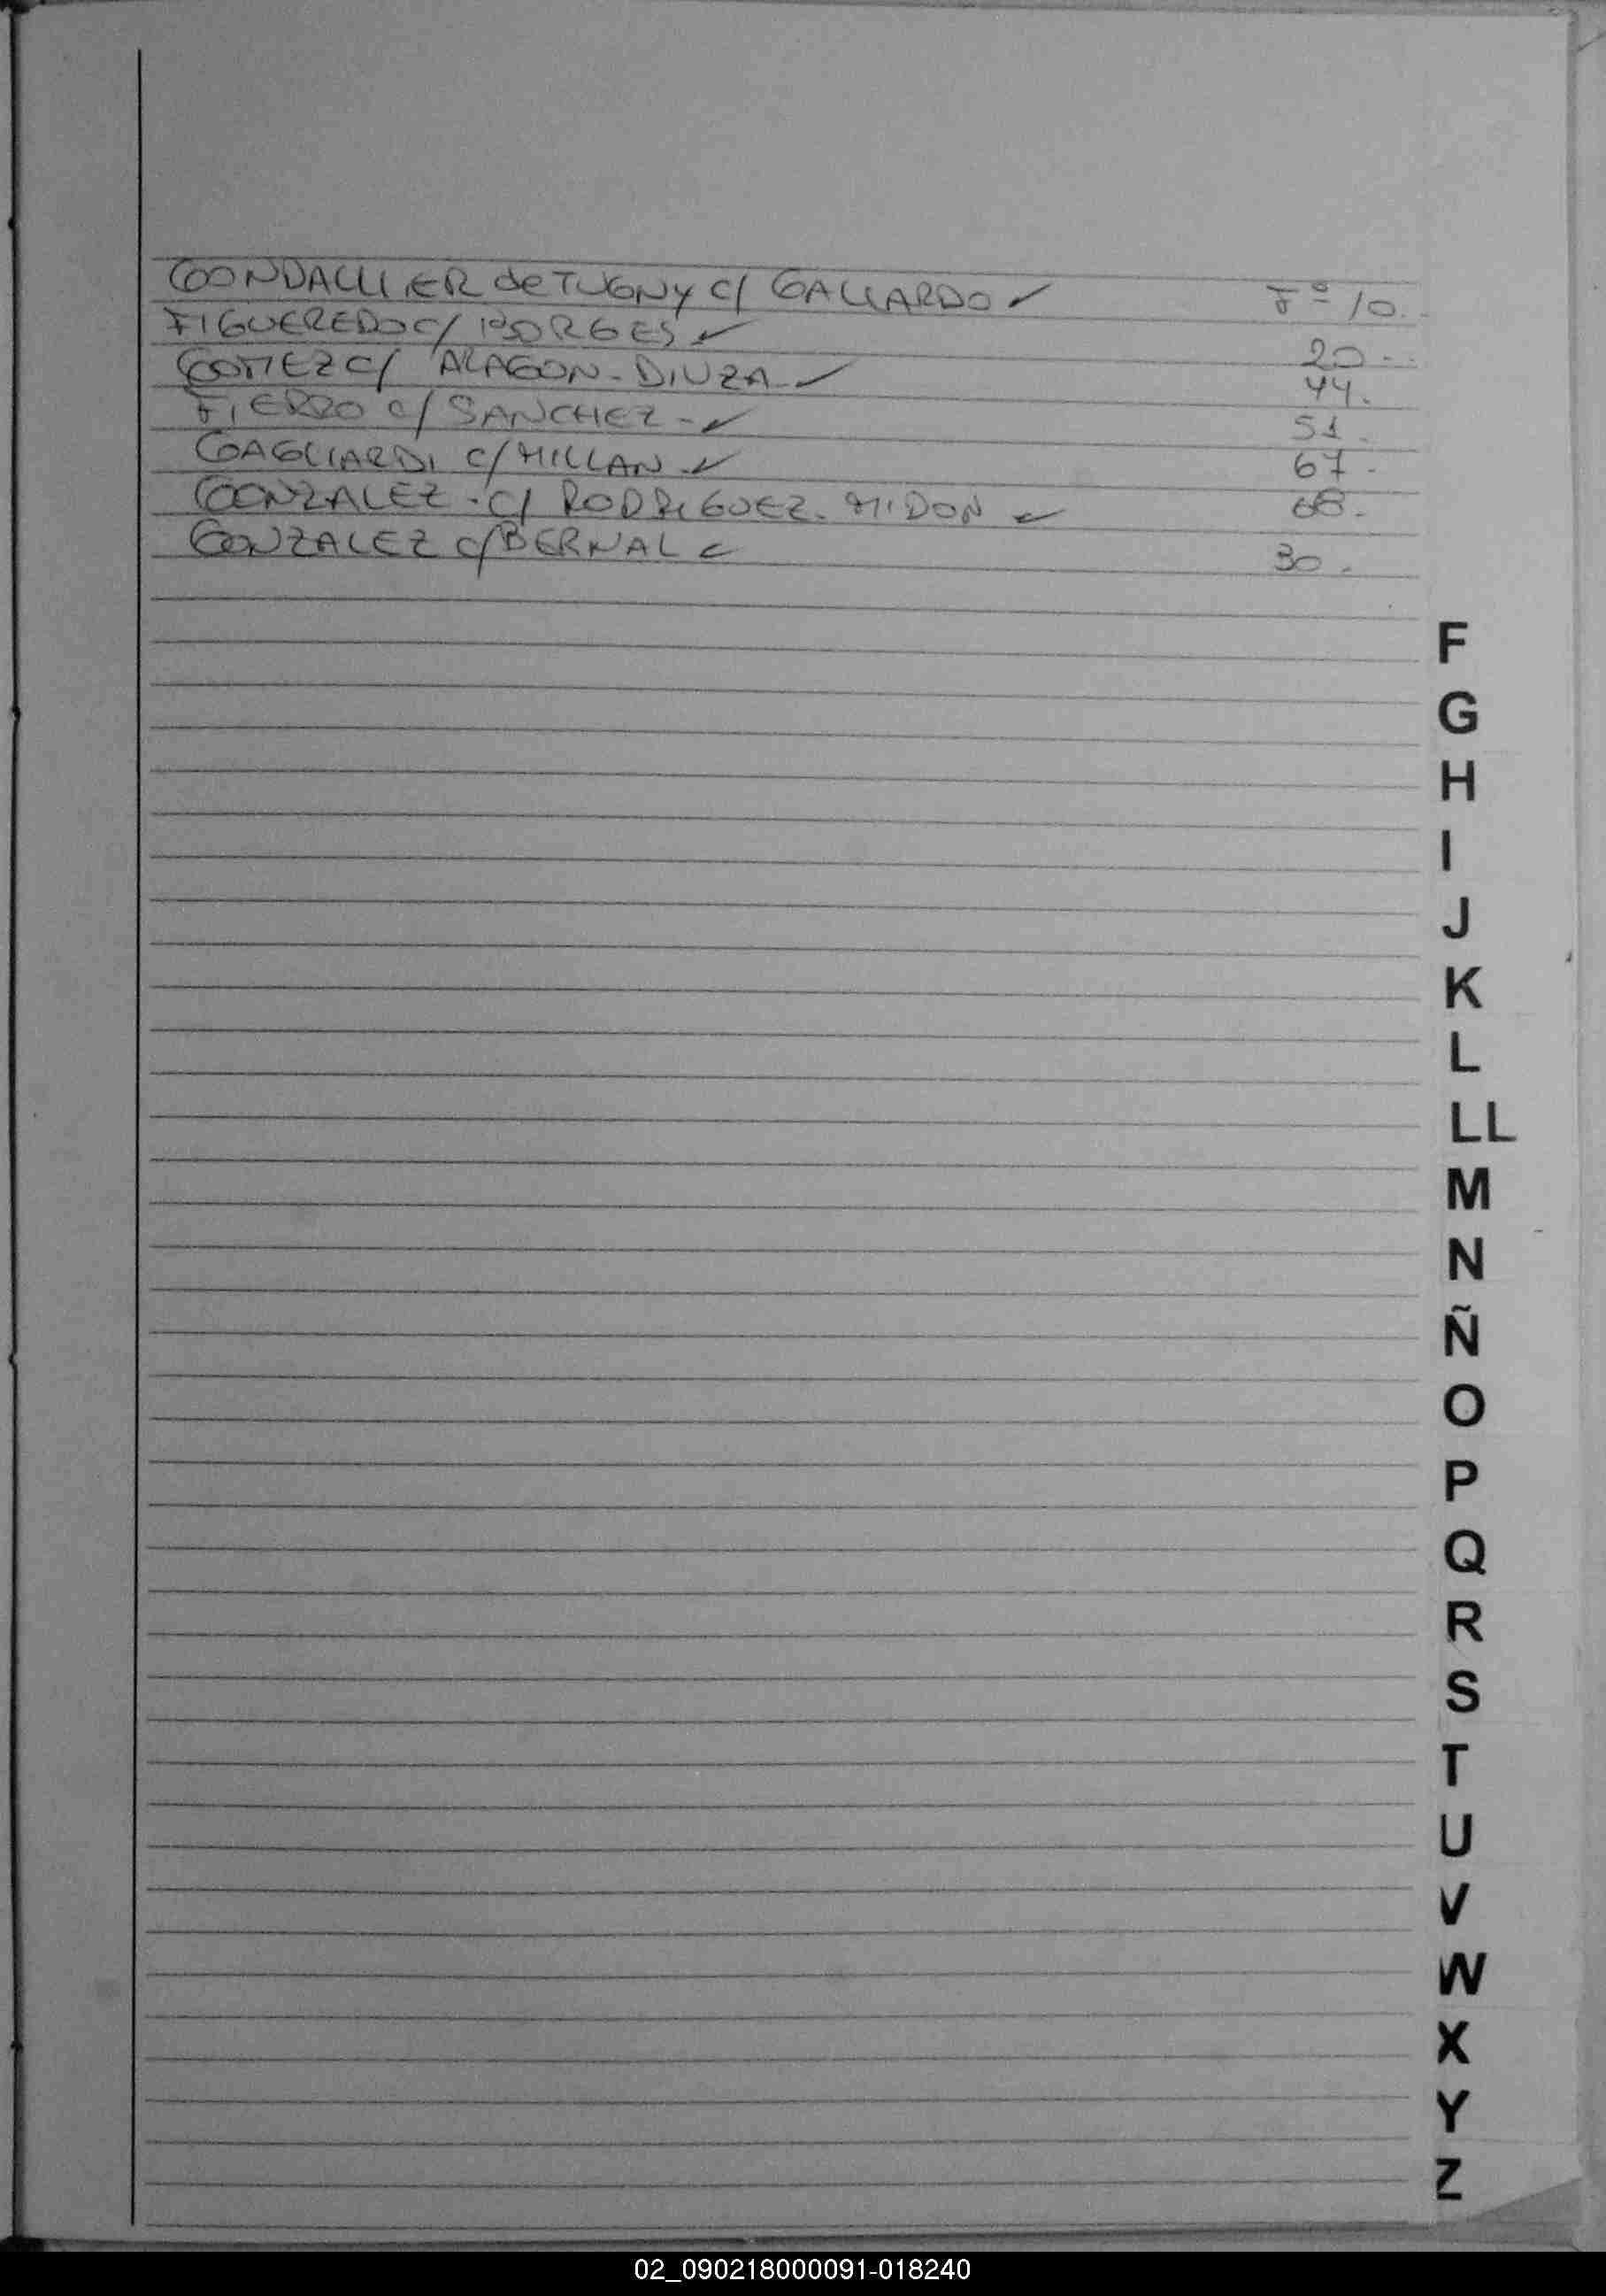 GONDALLIER de TUGNY C/ GALLARDO ✓ Fº 10.
FIGUEREDO C/ BORGES ✓ 20.-
GOMEZ C/ ARAGON - DIUZA ✓ 44.
FIERRO C/ SANCHEZ - ✓ 51.
GAGLIARDI C/ MILLAN ✓ 67.
GONZALEZ - C/ RODRIGUEZ - MIDON ✓ 68.
GONZALEZ C/ BERNAL ✓ 30.
F
G
H
I
J
K
L
LL
M
N
Ñ
O
P
Q
R
S
T
U
V
W
X
Y
Z
02_090218000091-018240